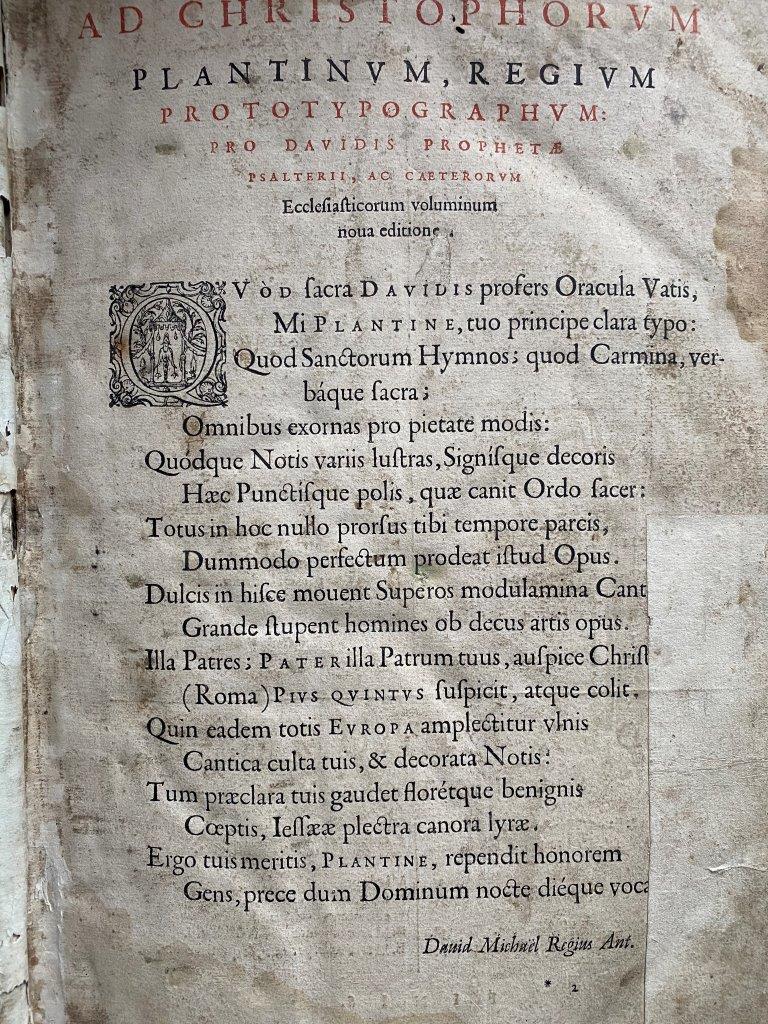 AD CHRISTOPHORVM
PLANTINVM, REGIVM
PROTOTYPOGRAPHVM:
PRO DAVIDIS PROPHETÆ
PSALTERII, AC CAETERORVM
Eccleſiaſticorum voluminum
noua editione.
QVÒD ſacra DAVIDIS profers Oracula Vatis,
Mi PLANTINE, tuo principe clara typo:
Quod Sanctorum Hymnos; quod Carmina, ver-
báque ſacra;
Omnibus exornas pro pietate modis:
Quódque Notis variis luſtras, Signiſque decoris
Hæc Punctiſque polis, quæ canit Ordo ſacer:
Totus in hoc nullo prorſus tibi tempore parcis,
Dummodo perfectum prodeat iſtud Opus.
Dulcis in hiſce mouent Superos modulamina Cant
Grande ſtupent homines ob decus artis opus.
Illa Patres; PATER illa Patrum tuus, auſpice Chriſt
(Roma) PIVS QVINTVS ſuſpicit, atque colit.
Quin eadem totis EVROPA amplectitur vlnis
Cantica culta tuis, & decorata Notis:
Tum præclara tuis gaudet florétque benignis
Cœptis, Ieſſææ plectra canora lyræ.
Ergo tuis meritis, PLANTINE, rependit honorem
Gens, prece dum Dominum nocte diéque voca
Dauid Michaël Regius Ant.
* 2